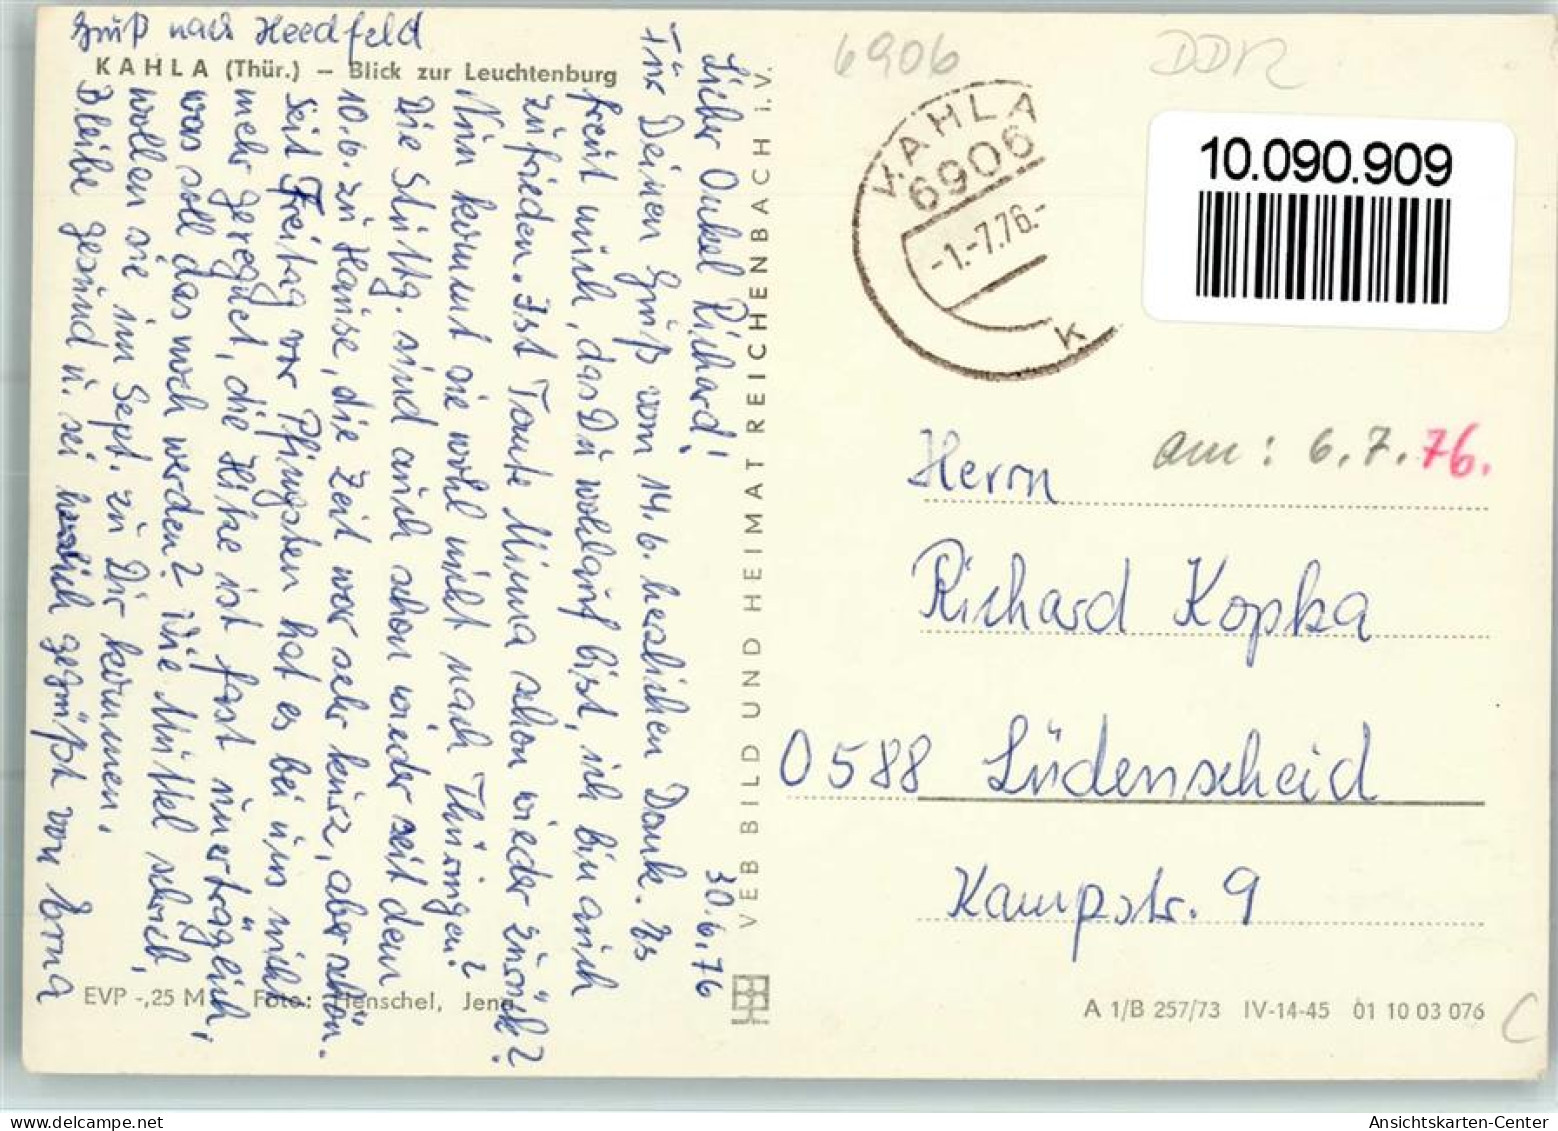 Gruß nach Heedfeld
KAHLA (Thür.) – Blick zur Leuchtenburg
30.6.76
Lieber Onkel Richard!
Für Deinen Gruß vom 14.6. herzlichen Dank. Es
freut mich, das Du wohlauf bist, ich bin auch
zufrieden. Ist Tante Minna schon wieder zurück?
Nun kommt sie wohl nicht nach Thüringen?
Die Stuttg. sind auch schon wieder seit dem
10.6. zu Hause, die Zeit war sehr kurz, aber schön.
Seit Freitag vor Pfingsten hat es bei uns nicht
mehr geregnet, die Hitze ist fast unerträglich,
was soll das noch werden? Wie Muttel schrieb,
wollen sie im Sept. zu Dir kommen.
Bleibe gesund u. sei herzlich gegrüßt von Erna
EVP -,25 M Foto: Henschel, Jena
VEB BILD UND HEIMAT REICHENBACH I.V.
6906
DDR
KAHLA
6906
-1.-7.76.-
K
10.090.909
am: 6.7.76.
Herrn
Richard Kopka
0588 Lüdenscheid
Kampstr. 9
A 1/B 257/73 IV-14-45 01 10 03 076
C
www.delcampe.net
Ansichtskarten-Center